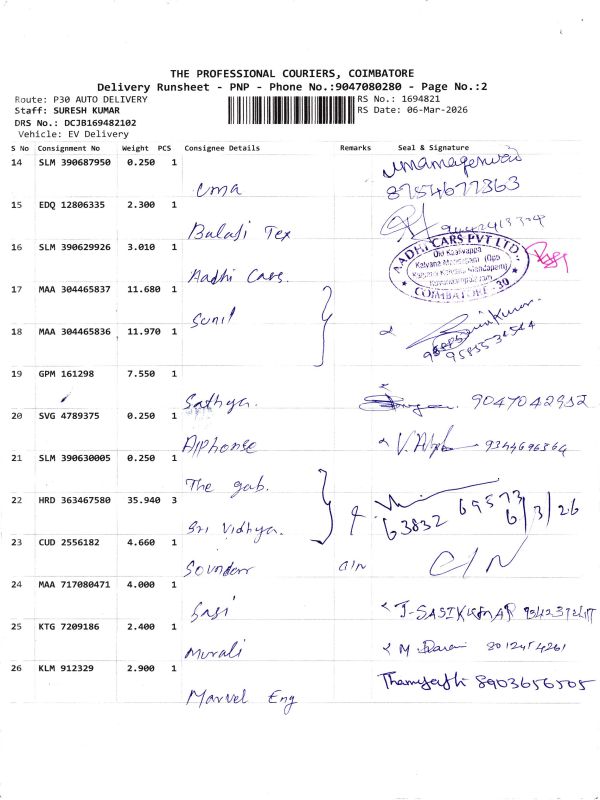 THE PROFESSIONAL COURIERS, COIMBATORE
Delivery Runsheet - PNP - Phone No.:9047080280 - Page No.:2
Route: P30 AUTO DELIVERY RS No.: 1694821
Staff: SURESH KUMAR RS Date: 06-Mar-2026
DRS No.: DCJB169482102
Vehicle: EV Delivery
S No Consignment No Weight PCS Consignee Details Remarks Seal & Signature
14 SLM 390687950 0.250 1
uma 8754677363
15 EDQ 12806335 2.300 1
Balaji Tex
16 SLM 390629926 3.010 1
Aadhi Cars. AADHI CARS PVT LTD.
COIMBATORE - 30
17 MAA 304465837 11.680 1
Sunil
18 MAA 304465836 11.970 1
19 GPM 161298 7.550 1
Sathya. 9047042952
20 SVG 4789375 0.250 1
Alphonse 9344696364
21 SLM 390630005 0.250 1
The gab.
22 HRD 363467580 35.940 3
Sri Vidhya. 63832 69573 6/3/26
23 CUD 2556182 4.660 1
Soundar C/N C/N
24 MAA 717080471 4.000 1
Sasi J-SASIKUMAR
25 KTG 7209186 2.400 1
Murali 8012454261
26 KLM 912329 2.900 1
Marvel Eng 8903656505